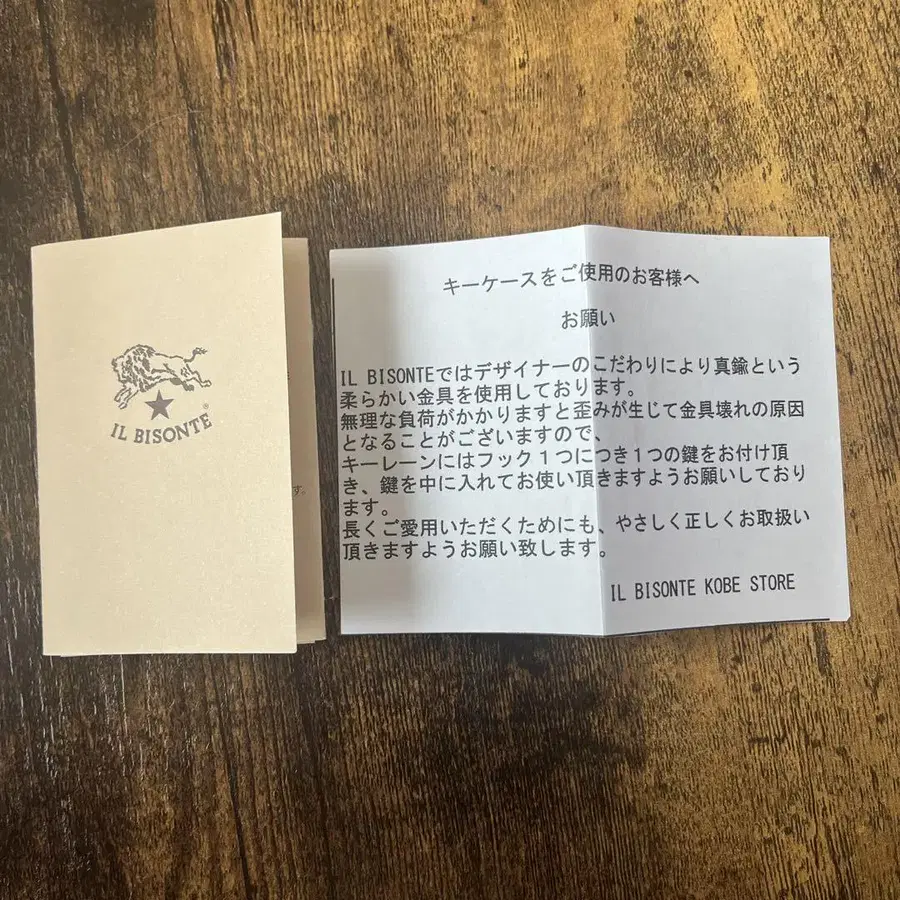 IL BISONTE
®
す。
キーケースをご使用のお客様へ
お願い
IL BISONTEではデザイナーのこだわりにより真鍮という
柔らかい金具を使用しております。
無理な負荷がかかりますと歪みが生じて金具壊れの原因
となることがございますので、
キーレーンにはフック1つにつき1つの鍵をお付け頂
き、鍵を中に入れてお使い頂きますようお願いしており
ます。
長くご愛用いただくためにも、やさしく正しくお取扱い
頂きますようお願い致します。
IL BISONTE KOBE STORE